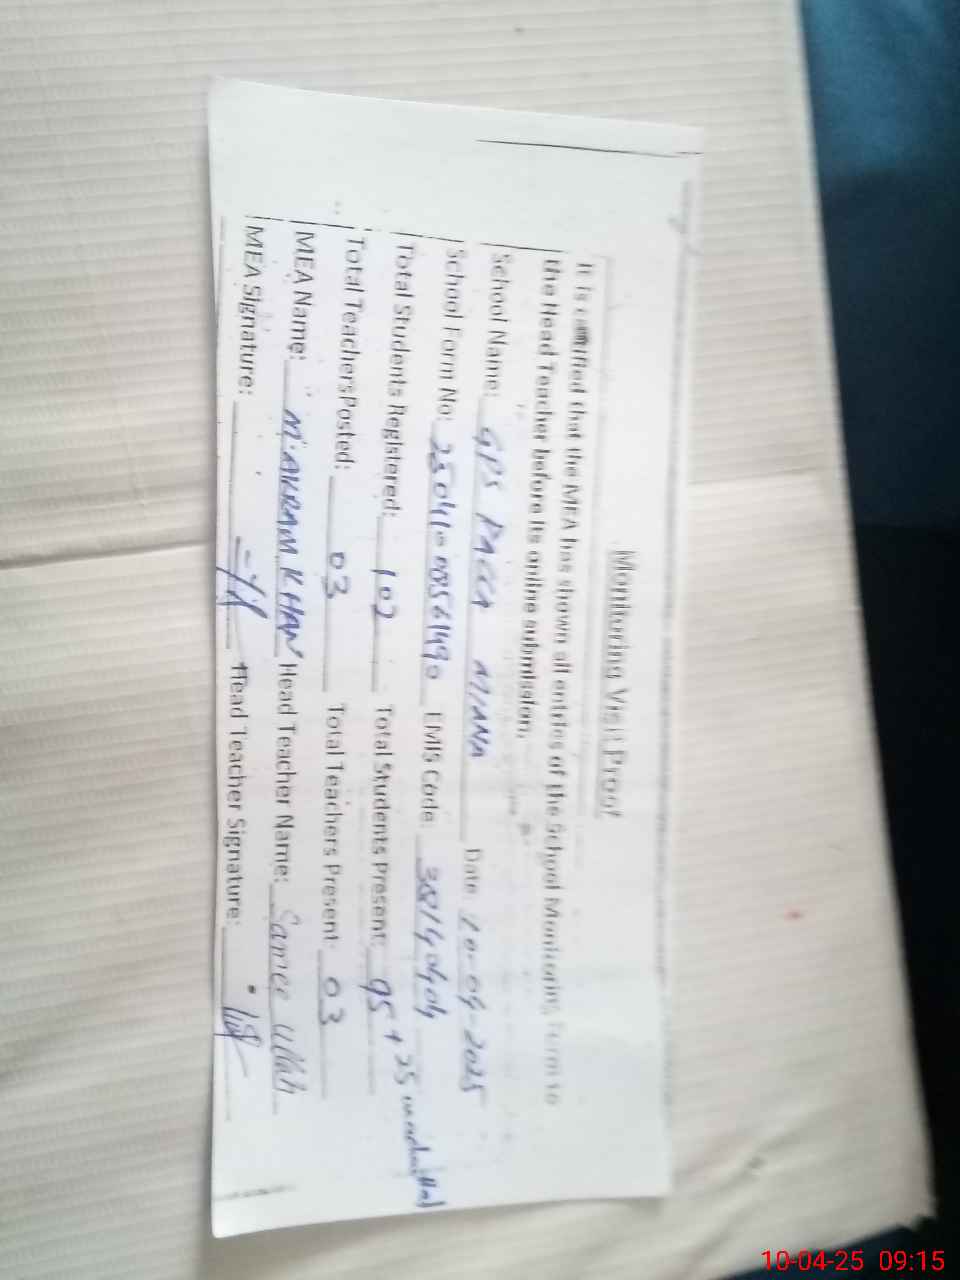 Monitoring Visit Proof
It is certified that the MEA has shown all entries of the School Monitoring Form to
the Head Teacher before its online submission.
School Name: GPS PACCA MIANA Date: 10-04-2025
School Form No: EMIS Code:
Total Students Registered: 102 Total Students Present: 95 + 25
Total Teachers Posted: 03 Total Teachers Present: 03
MEA Name: M. AKRAM KHAN Head Teacher Name: Samee Ullah
MEA Signature: Head Teacher Signature:
10-04-25 09:15